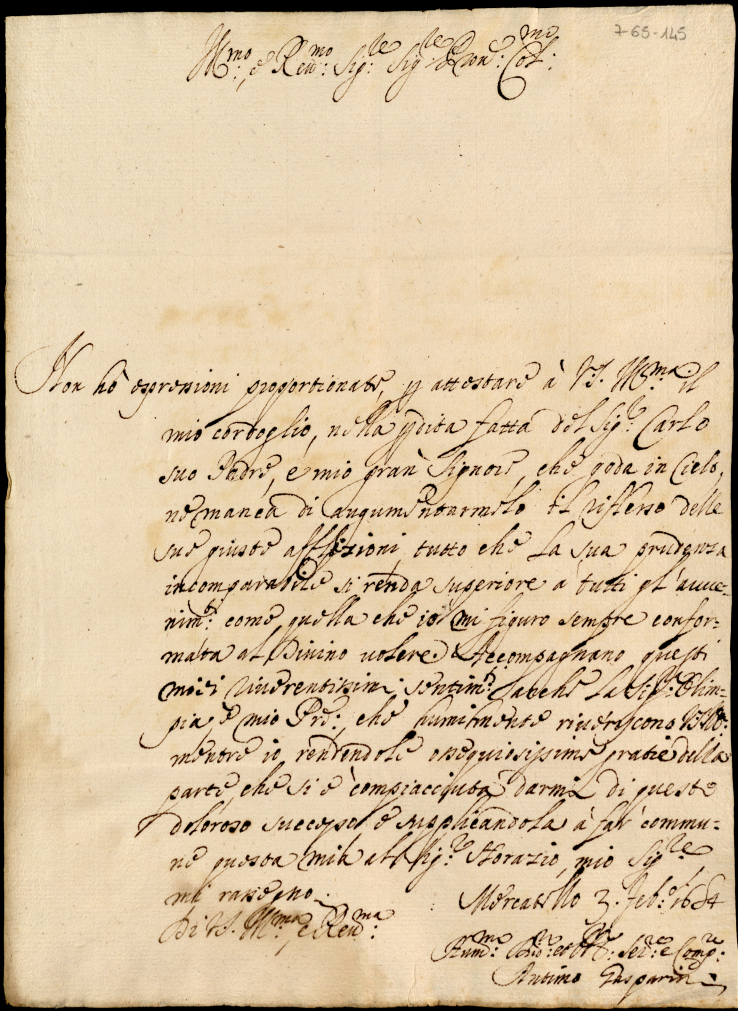 7-65-145
Ill.mo, e Reu.mo Sig.re Sig.re e Pron. Col.mo
Non hò espressioni proportionate, p attestare à V.S. Ill.ma il
mio cordoglio, nella pdita fatta del Sig.r Carlo
suo Padre, e mio gran Signore, che goda in Cielo,
ne manca di augumentarmelo il riflesso delle
sue giuste afflizioni, tutto che la sua prudenza
incomparabile si renda superiore a tutti gl'auue-
nim.ti come quella che io mi figuro sempre confor-
mata al Diuino uolere. Accompagnano questi
miei riuerentissimi sentim.ti anche la Sig.ra Olim-
pia e mio Pre: che humilmente riueriscono V.S. Ill.ma
mentre io rendendole ossequiosissime gratie della
parte, che si è compiacciuta darmi di questo
doloroso successo e supplicandola à far commu-
ne questa mia al Sig.r Horazio, mio Sig.re
mi rassegno.
Mercatello 2. Feb.o 1684
Di V.S. Ill.ma, e Reu.ma
Hum.mo Deu.mo et Obl. Ser.re e Comp.re
Antimo Gasparini